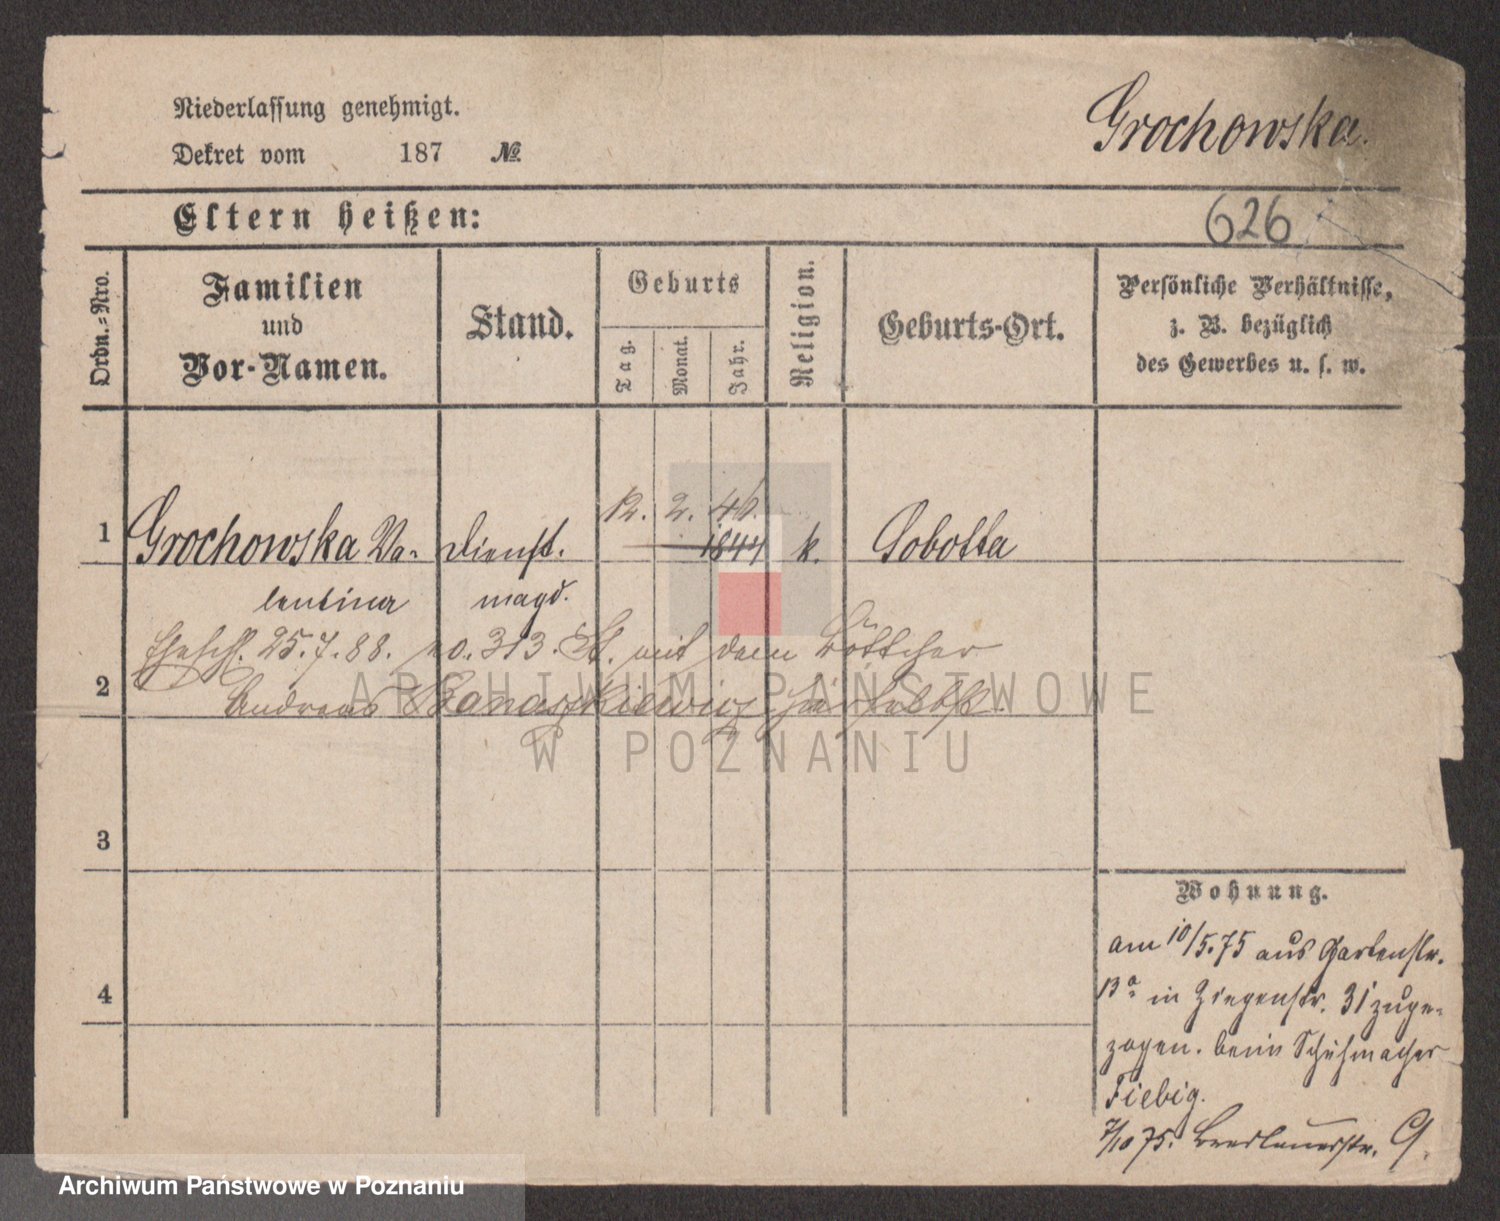 Niederlassung genehmigt.
Dekret vom 187 №
Grochowska.
Eltern heißen:
626
Ordn.-Nro.
Familien
und
Vor-Namen.
Stand.
Geburts
Tag.
Monat.
Jahr.
Religion.
Geburts-Ort.
Persönliche Verhältnisse,
z. B. bezüglich
des Gewerbes u. s. w.
12. 2. 46.
1 Grochowska Va- Dienst. 1844 k. Sobotka
lentina magd.
Eheschl. 25.7.88. no. 313. St. mit dem Böttcher
2 Andreas
3
Wohnung.
am 10/5.75 aus Gartenstr.
13a in Ziegenstr. 31 zuge-
4
zogen. beim Schuhmacher
Fiebig.
7/10 75. Breslauerstr. 9.
ARCHIWUM PAŃSTWOWE
W POZNANIU
Archiwum Państwowe w Poznaniu